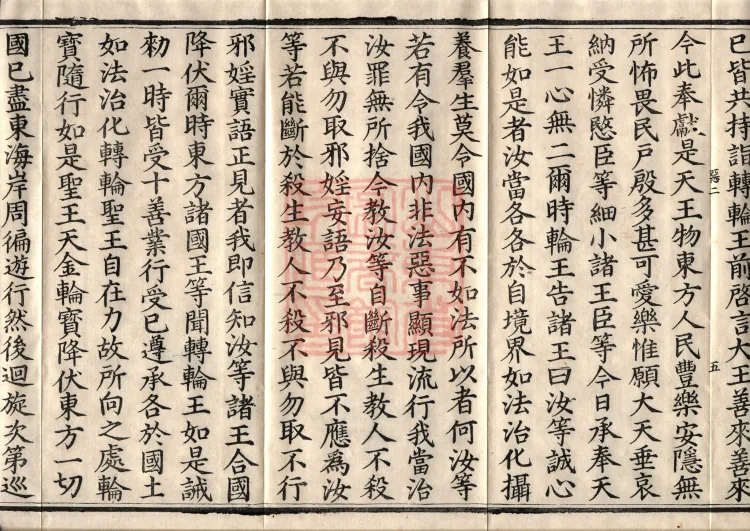 已皆共持詣轉輪王前啓言大王善來善來
惡二 五
今此奉獻是天王物東方人民豐樂安隱無
所怖畏民戶殷多甚可愛樂惟願大天垂哀
納受憐愍臣等細小諸王臣等今日承奉天
王一心無二爾時輪王告諸王曰汝等誠心
能如是者汝當各各於自境界如法治化攝
養羣生莫令國內有不如法所以者何汝等
若有令我國內非法惡事顯現流行我當治
汝罪無所捨今教汝等自斷殺生教人不殺
不與勿取邪婬妄語乃至邪見皆不應爲汝
等若能斷於殺生教人不殺不與勿取不行
邪婬實語正見者我即信知汝等諸王合國
降伏爾時東方諸國王等聞轉輪王如是誡
勑一時皆受十善業行受已遵承各於國土
如法治化轉輪聖王自在力故所向之處輪
寶隨行如是聖王天金輪寶降伏東方一切
國已盡東海岸周徧遊行然後迴旋次第巡